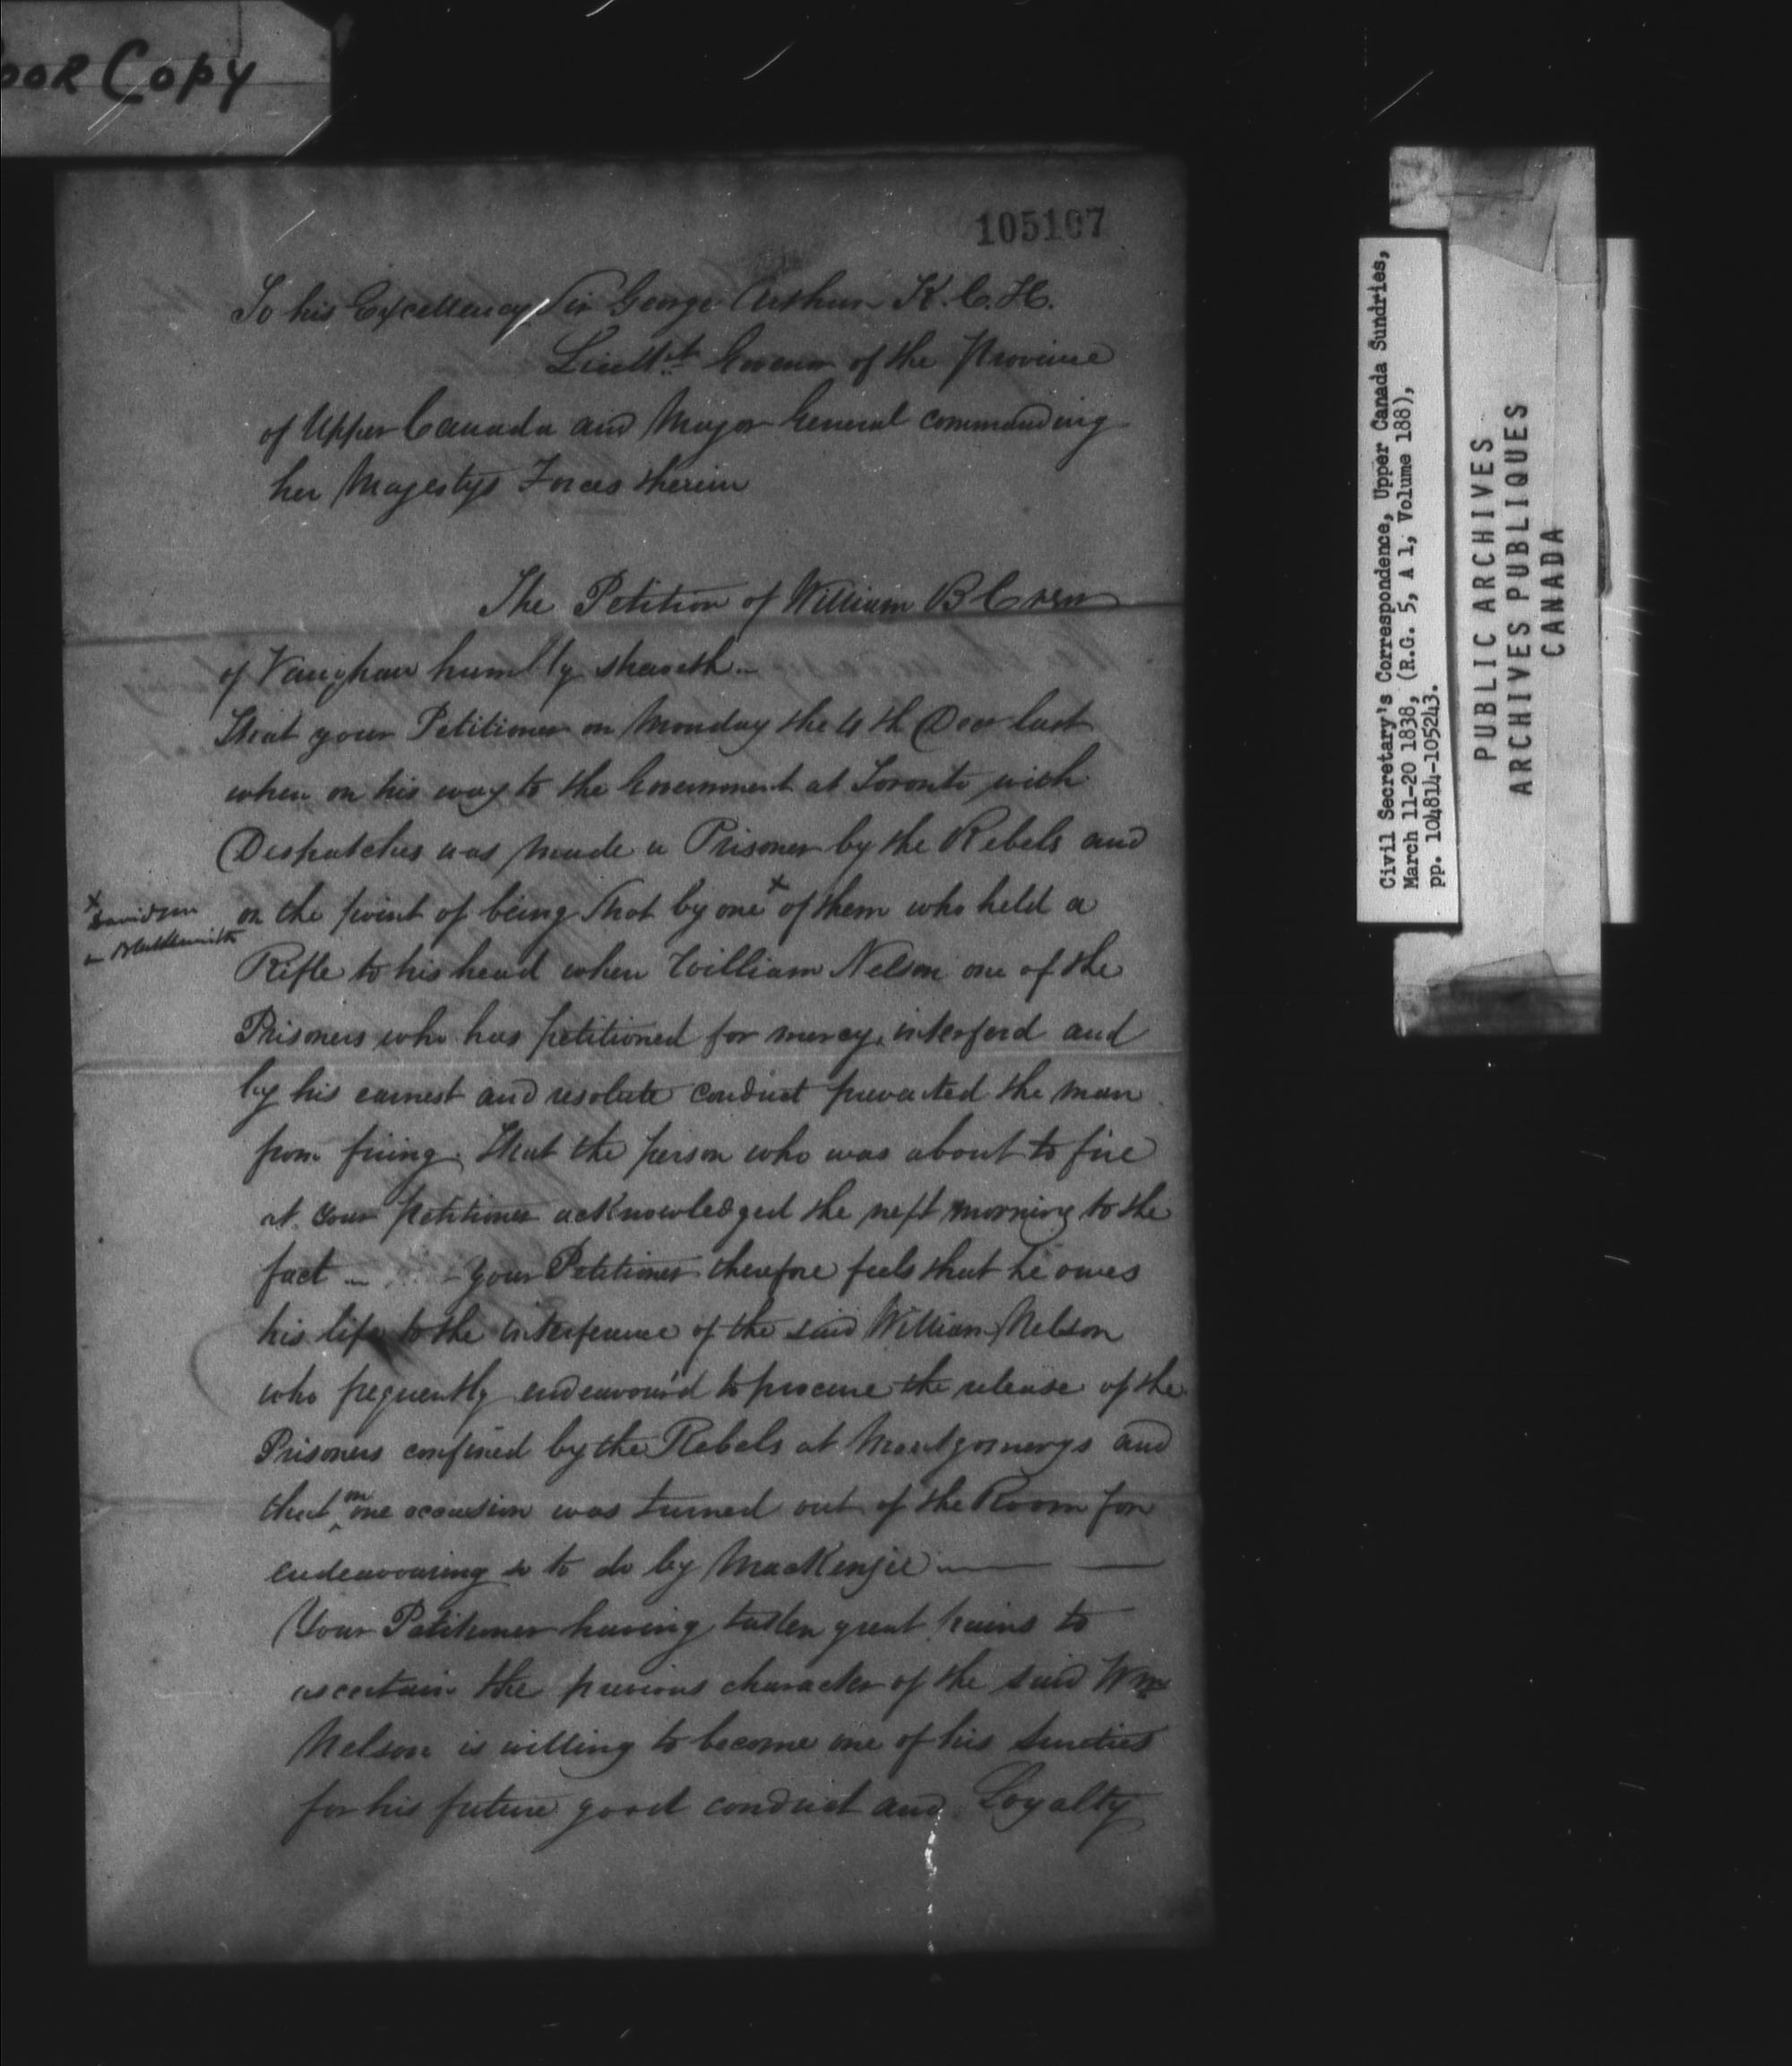 OOR COPY
105107
To his Excellency Sir George Arthur K.C.H.
Lieutt. Governor of the Province
of Upper Canada and Major General commanding
her Majestys Forces therein
The Petition of William B Crew
of Vaughan humbly sheweth
That your Petitioner on Monday the 4th Decr last
when on his way to the Government at Toronto with
Despatches was made a Prisoner by the Rebels and
x
Davidson
a Blacksmith
on the point of being shot by one x of them who held a
Rifle to his head when William Nelson one of the
Prisoners who has petitioned for mercy, interferd and
by his earnest and resolute conduct prevented the man
from firing. That the person who was about to fire
at your petitioner acknowledged the next morning to the
fact — your Petitioner therefore feels that he owes
his life to the interference of the said William Nelson
who frequently endeavour'd to procure the release of the
Prisoners confined by the Rebels at Montgomerys and
that on one occasion was turned out of the Room for
endeavouring so to do by MacKenzie —
Your Petitioner having taken great pains to
ascertain the previous character of the said Wm
Nelson is willing to become one of his Sureties
for his future good conduct and Loyalty
Civil Secretary's Correspondence, Upper Canada Sundries,
March 11-20 1838, (R.G. 5, A 1, Volume 188),
pp. 104814-105243.
PUBLIC ARCHIVES
ARCHIVES PUBLIQUES
CANADA